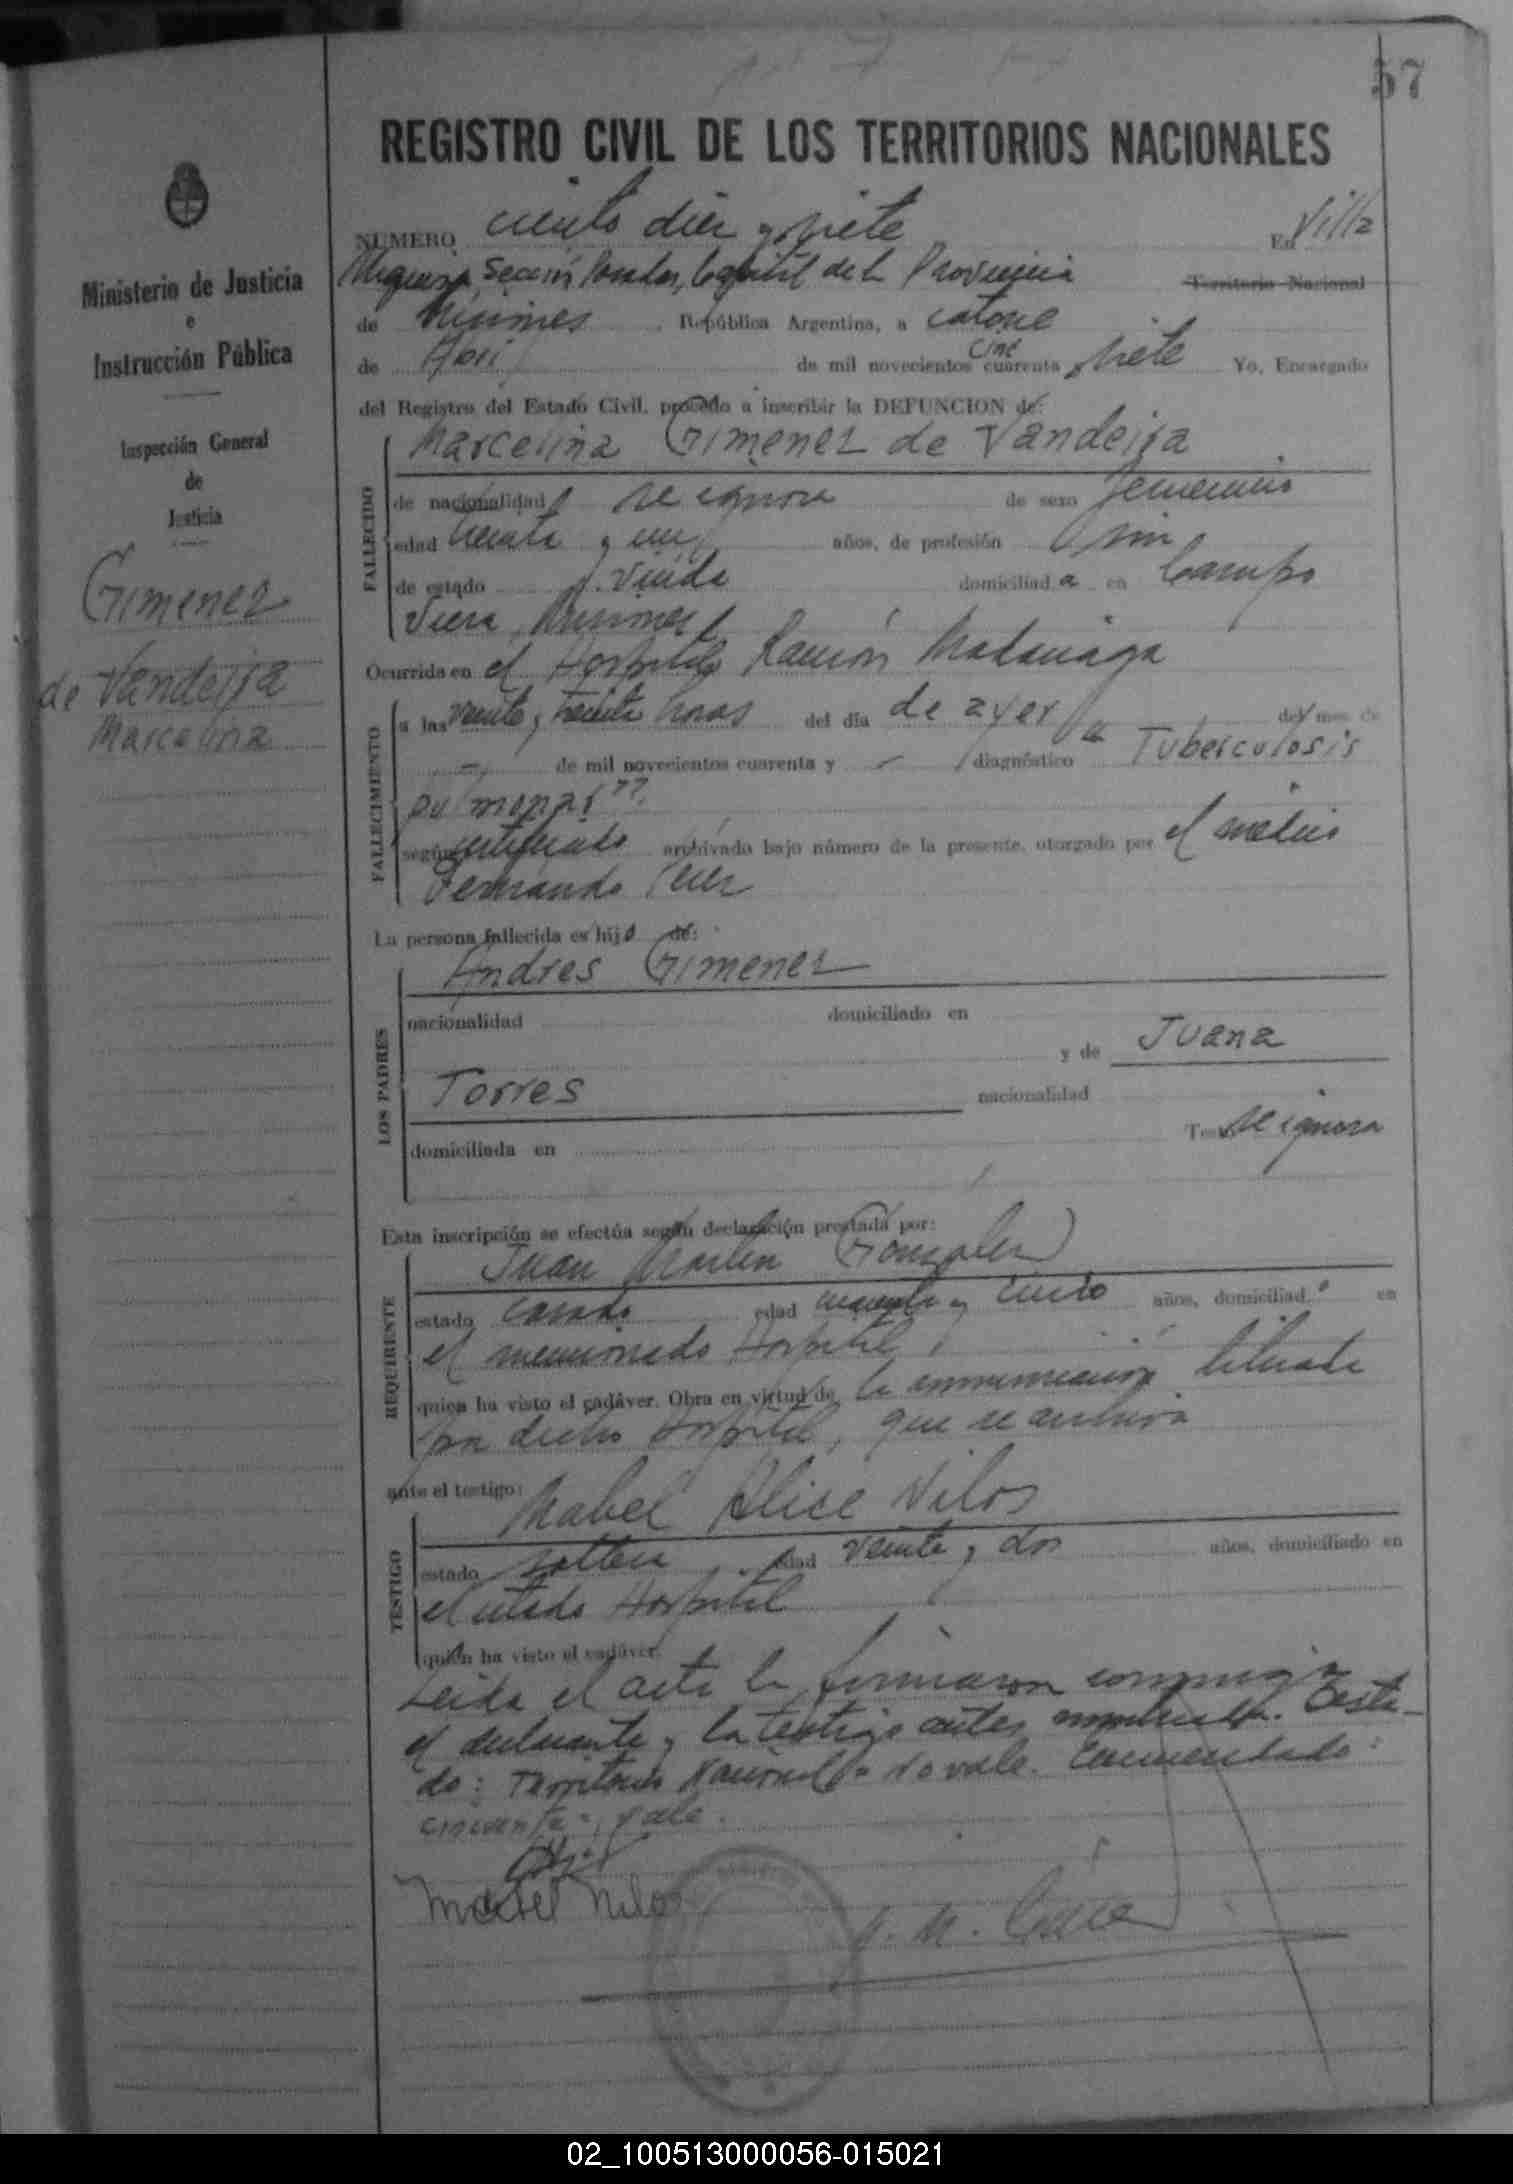 57
REGISTRO CIVIL DE LOS TERRITORIOS NACIONALES
NUMERO ciento diez y siete En Villa
Urquiza Sección Posadas, Capital de la Provincia Territorio Nacional
de Misiones, República Argentina, a catorce
de Abril de mil novecientos cuarenta cinc y siete Yo, Encargado
del Registro del Estado Civil, procedo a inscribir la DEFUNCION de:
Marcelina Gimenez de Vandeira
FALLECIDO
de nacionalidad se ignora de sexo femenino
edad treinta y un años, de profesión sin
de estado viuda domiciliada en Campo
Viera, Misiones
Ocurrida en el Hospital Ramón Madariaga
FALLECIMIENTO
a las veinte y treinta horas del día de ayer del mes de
de mil novecientos cuarenta y diagnóstico "Tuberculosis
pulmonar".
según certificado archivado bajo número de la presente, otorgado por el médico
Fernando
La persona fallecida es hija de:
LOS PADRES
Andres Gimenez
nacionalidad domiciliado en
y de Juana
Torres nacionalidad
domiciliada en se ignora
Esta inscripción se efectúa según declaración prestada por:
REQUIRENTE
Juan Martin Gonzalez
estado casado edad cuarenta y cinco años, domiciliado en
el mencionado Hospital,
quien ha visto el cadáver. Obra en virtud de la comunicación librada
por dicho Hospital, que se archiva
ante el testigo:
TESTIGO
Mabel Alice Nilos
estado soltera edad veinte y dos años, domiciliado en
el citado Hospital
quién ha visto el cadáver.
Leida el acta la firmaron conmigo
el declarante y la testigo antes nombrada. Testa-
do: Territorio Nacional = No vale. Enmendado:
cincuenta =, vale.
Mabel Nilos
Ministerio de Justicia
e
Instrucción Pública
Inspección General
de
Justicia
Gimenez
de Vandeira
Marcelina
02_100513000056-015021